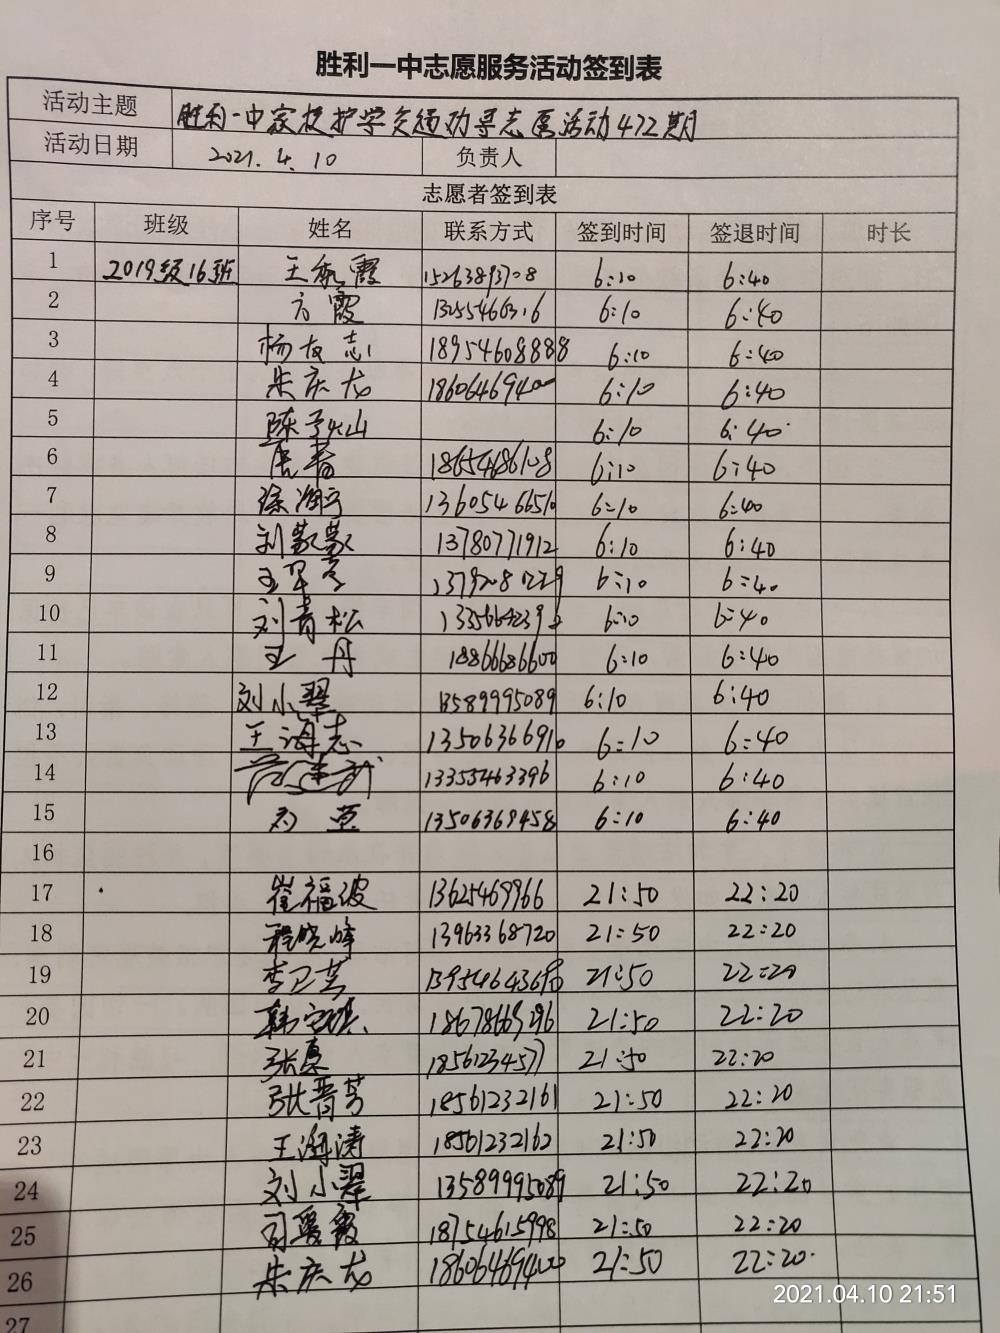 胜利一中志愿服务活动签到表
活动主题 胜利一中家校护学交通劝导志愿活动472期
活动日期 2021.4.10 负责人
志愿者签到表
序号 班级 姓名 联系方式 签到时间 签退时间 时长
1 2019级16班 王 霞 15263893708 6:10 6:40
2 方霞 6:10 6:40
3 杨友志 18954608888 6:10 6:40
4 朱庆龙 18606469400 6:10 6:40
5 陈 6:10 6:40
6 唐春 18654686108 6:10 6:40
7 徐海宁 13605466510 6:10 6:40
8 刘蒙蒙 13780771912 6:10 6:40
9 王 6:10 6:40
10 刘青松 6:10 6:40
11 王丹 18866686600 6:10 6:40
12 刘小翠 13589995089 6:10 6:40
13 王海志 13506366910 6:10 6:40
14 13355463396 6:10 6:40
15 13506369458 6:10 6:40
16
17 崔福波 13625469966 21:50 22:20
18 程晓峰 13963368720 21:50 22:20
19 李卫芸 21:50 22:20
20 韩 18678669296 21:50 22:20
21 张真 18561234577 21:50 22:20
22 张晋芳 18561232161 21:50 22:20
23 王海涛 18561232162 21:50 22:20
24 刘小翠 13589995089 21:50 22:20
25 司爱霞 18754615998 21:50 22:20
26 朱庆龙 18606469400 21:50 22:20
27
2021.04.10 21:51